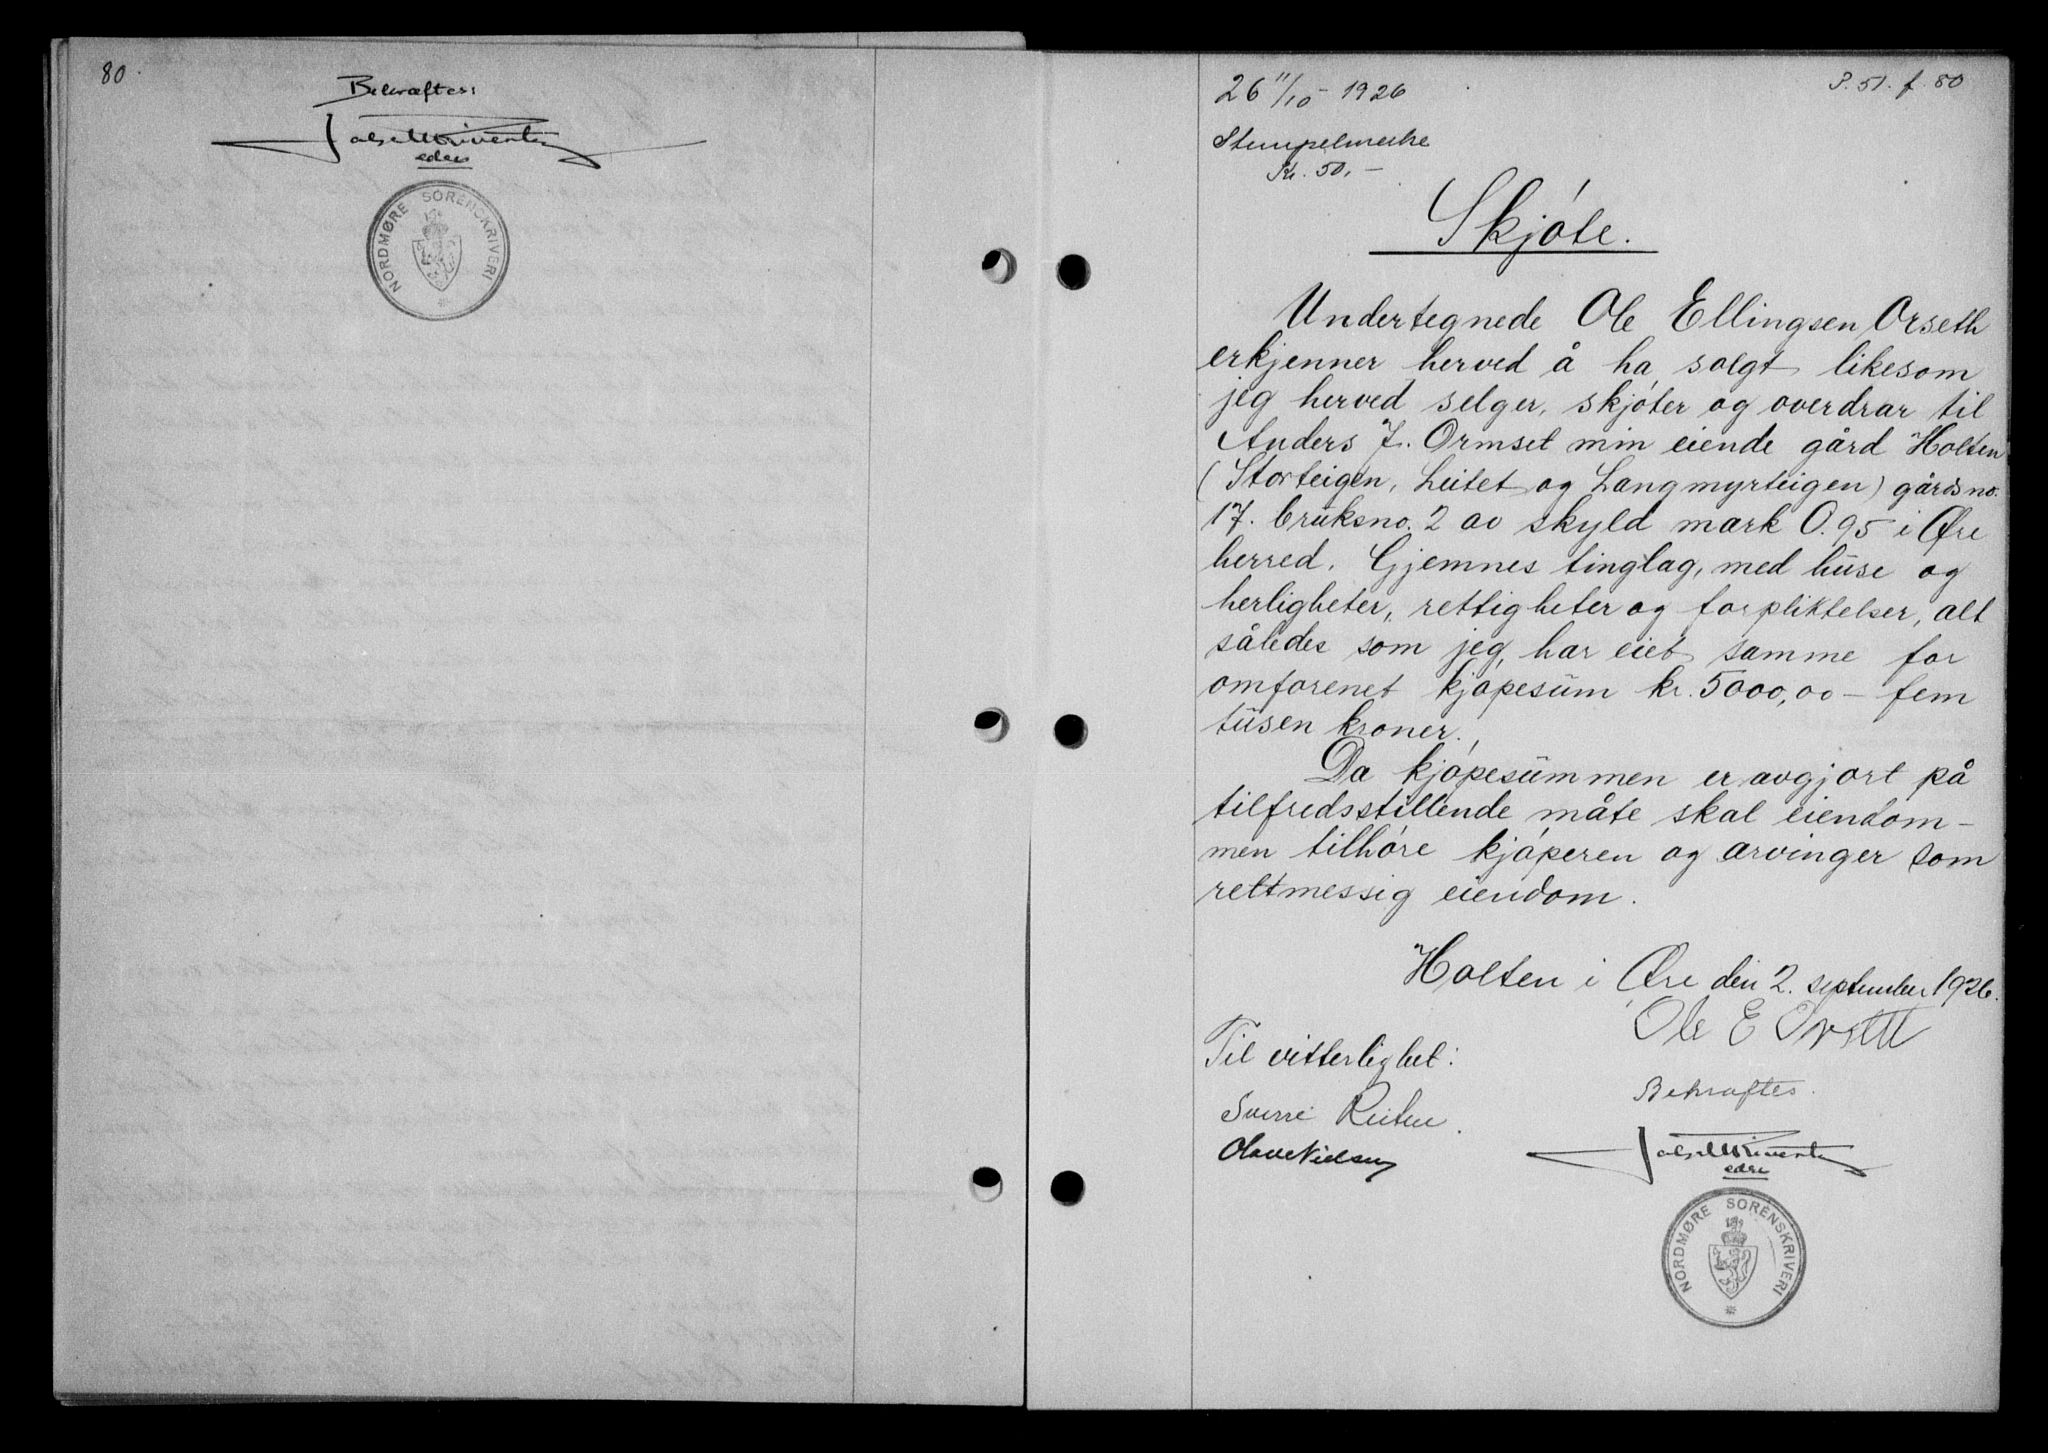 80.
Bekræftes:
edsv
NORDMØRE SORENSKRIVERI
26 11/10 - 1926
P. 51. f. 80
Stempelmerke
Kr. 50,-
Skjøte.
Undertegnede Ole Ellingsen Orseth
erkjenner herved å ha solgt likesom
jeg herved selger, skjøter og overdrar til
Anders J. Ormset min eiende gård Holten
(Storteigen, Leitet og Langmyrteigen) gårdsno.
17. bruksno. 2 av skyld mark 0.95 i Øre
herred. Gjemnes tinglag, med huse og
herligheter, rettigheter og forpliktelser, alt
således som jeg har eiet samme for
omforenet kjøpesum kr. 5000,00 - fem
tusen kroner.
Da kjøpesummen er avgjort på
tilfredsstillende måte skal eiendom-
men tilhøre kjøperen og arvinger som
rettmessig eiendom.
Holten i Øre den 2. september 1926.
Ole E Orsett
Til vitterlighet:
Bekræftes.
Sverre Reiten.
Olave Nielsen
edsv
NORDMØRE SORENSKRIVERI